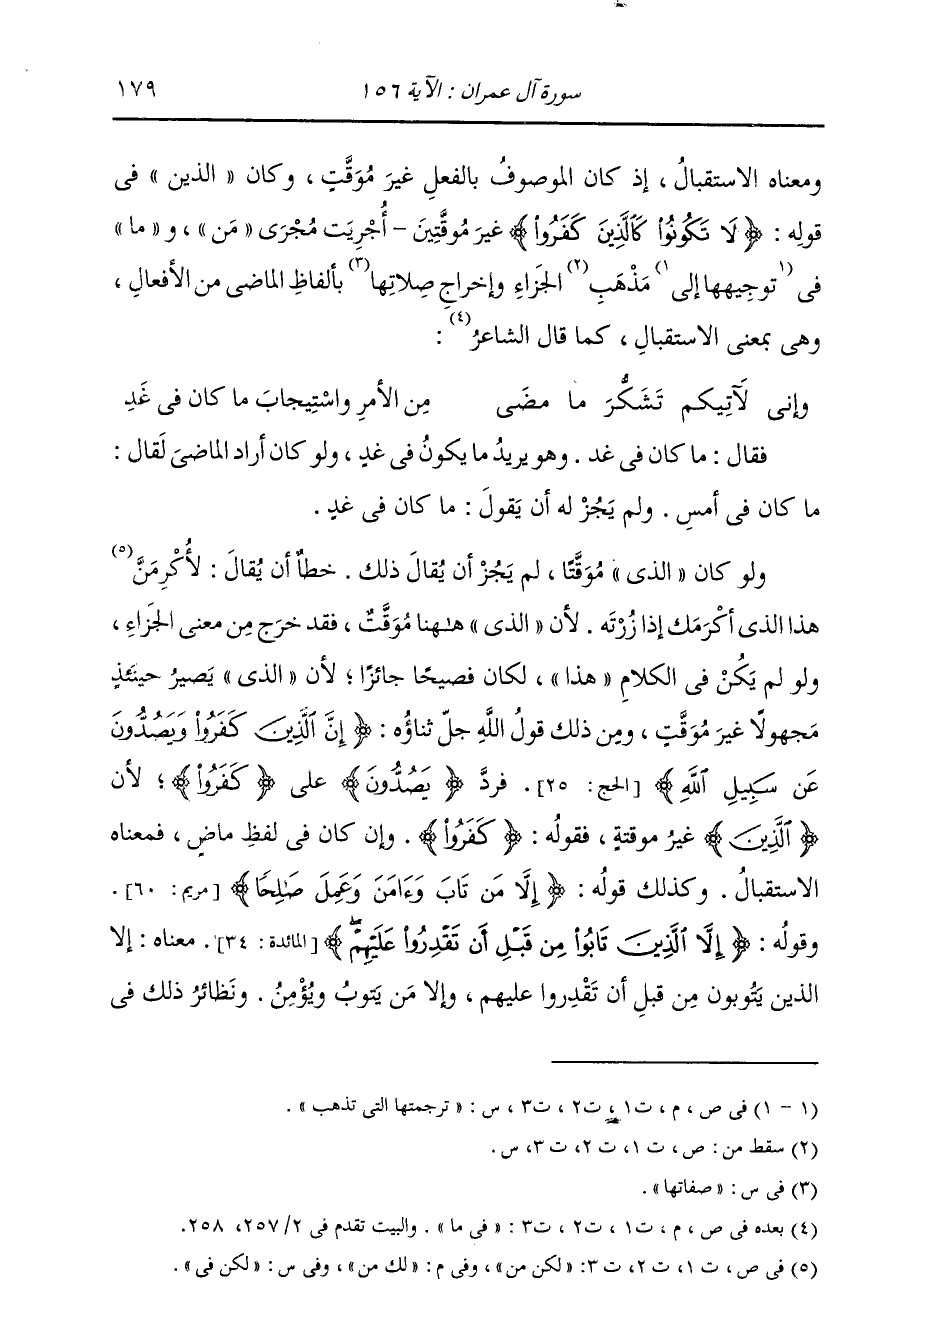 سورة آل عمران : الآية ١٥٦ ١٧٩
ومعناه الاستقبالُ ، إذ كان الموصوفُ بالفعلِ غيرَ مُوَقَّتٍ ، وكان « الذين » فى
قولِه : ﴿ لَا تَكُونُوا۟ كَٱلَّذِينَ كَفَرُوا۟ ﴾ غيرَ مُوقَّتِينَ – أُجْرِيَت مُجْرَى « مَن » ، و « ما »
فى (١ توجيهها إلى ١) مَذْهَبِ (٢) الجَزاءِ وإخراجِ صِلاتِها (٣) بألفاظِ الماضى من الأفعالِ ،
وهى بمعنى الاستقبالِ ، كما قال الشاعرُ (٤) :
وإنى لَآتِيكم تَشَكُّرَ ما مضَى مِن الأمرِ واسْتِيجابَ ما كان فى غَدِ
فقال : ما كان فى غد . وهو يريدُ ما يكونُ فى غدٍ ، ولو كان أراد الماضىَ لَقال :
ما كان فى أمسِ . ولم يَجُزْ له أن يَقولَ : ما كان فى غدٍ .
ولو كان « الذى » مُوَقَّتًا ، لم يَجُزْ أن يُقالَ ذلك . خطأٌ أن يُقالَ : لأُكْرِمَنَّ (٥)
هذا الذى أكْرَمَك إذا زُرْتَه . لأن « الذى » هـٰهنا مُوَقَّتٌ ، فقد خرَج مِن معنى الجَزاءِ ،
ولو لم يَكُنْ فى الكلامِ « هذا » ، لكان فصيحًا جائزًا ؛ لأن « الذى » يَصيرُ حينَئذٍ
مَجهولًا غيرَ مُوَقَّتٍ ، ومِن ذلك قولُ اللَّهِ جلّ ثناؤُه : ﴿ إِنَّ ٱلَّذِينَ كَفَرُوا۟ وَيَصُدُّونَ
عَن سَبِيلِ ٱللَّهِ ﴾ [الحج: ٢٥] . فردَّ ﴿ يَصُدُّونَ ﴾ على ﴿ كَفَرُوا۟ ﴾ ؛ لأن
﴿ ٱلَّذِينَ ﴾ غيرُ موقتةٍ ، فقولُه : ﴿ كَفَرُوا۟ ﴾ . وإن كان فى لفظِ ماضٍ ، فمعناه
الاستقبالُ . وكذلك قولُه : ﴿ إِلَّا مَن تَابَ وَءَامَنَ وَعَمِلَ صَـٰلِحًا ﴾ [مريم: ٦٠] .
وقولُه : ﴿ إِلَّا ٱلَّذِينَ تَابُوا۟ مِن قَبْلِ أَن تَقْدِرُوا۟ عَلَيْهِمْ ۖ ﴾ [المائدة: ٣٤] . معناه : إلا
الذين يَتُوبون مِن قبلِ أن تَقْدِروا عليهم ، وإلا مَن يَتوبُ ويُؤْمِنُ . ونَظائرُ ذلك فى
(١ - ١) فى ص ، م ، ت١ ، ت٢ ، ت٣ ، س : « ترجمتها التى تذهب » .
(٢) سقط من : ص ، ت ١ ، ت ٢ ، ت ٣ ، س .
(٣) فى س : « صفاتها » .
(٤) بعده فى ص ، م ، ت١ ، ت٢ ، ت٣ : « فى ما » . والبيت تقدم فى ٢/ ٢٥٧ ، ٢٥٨ .
(٥) فى ص ، ت ١ ، ت ٢ ، ت ٣ : « لكن من » ، وفى م : « لك من » ، وفى س : « لكن فى » .